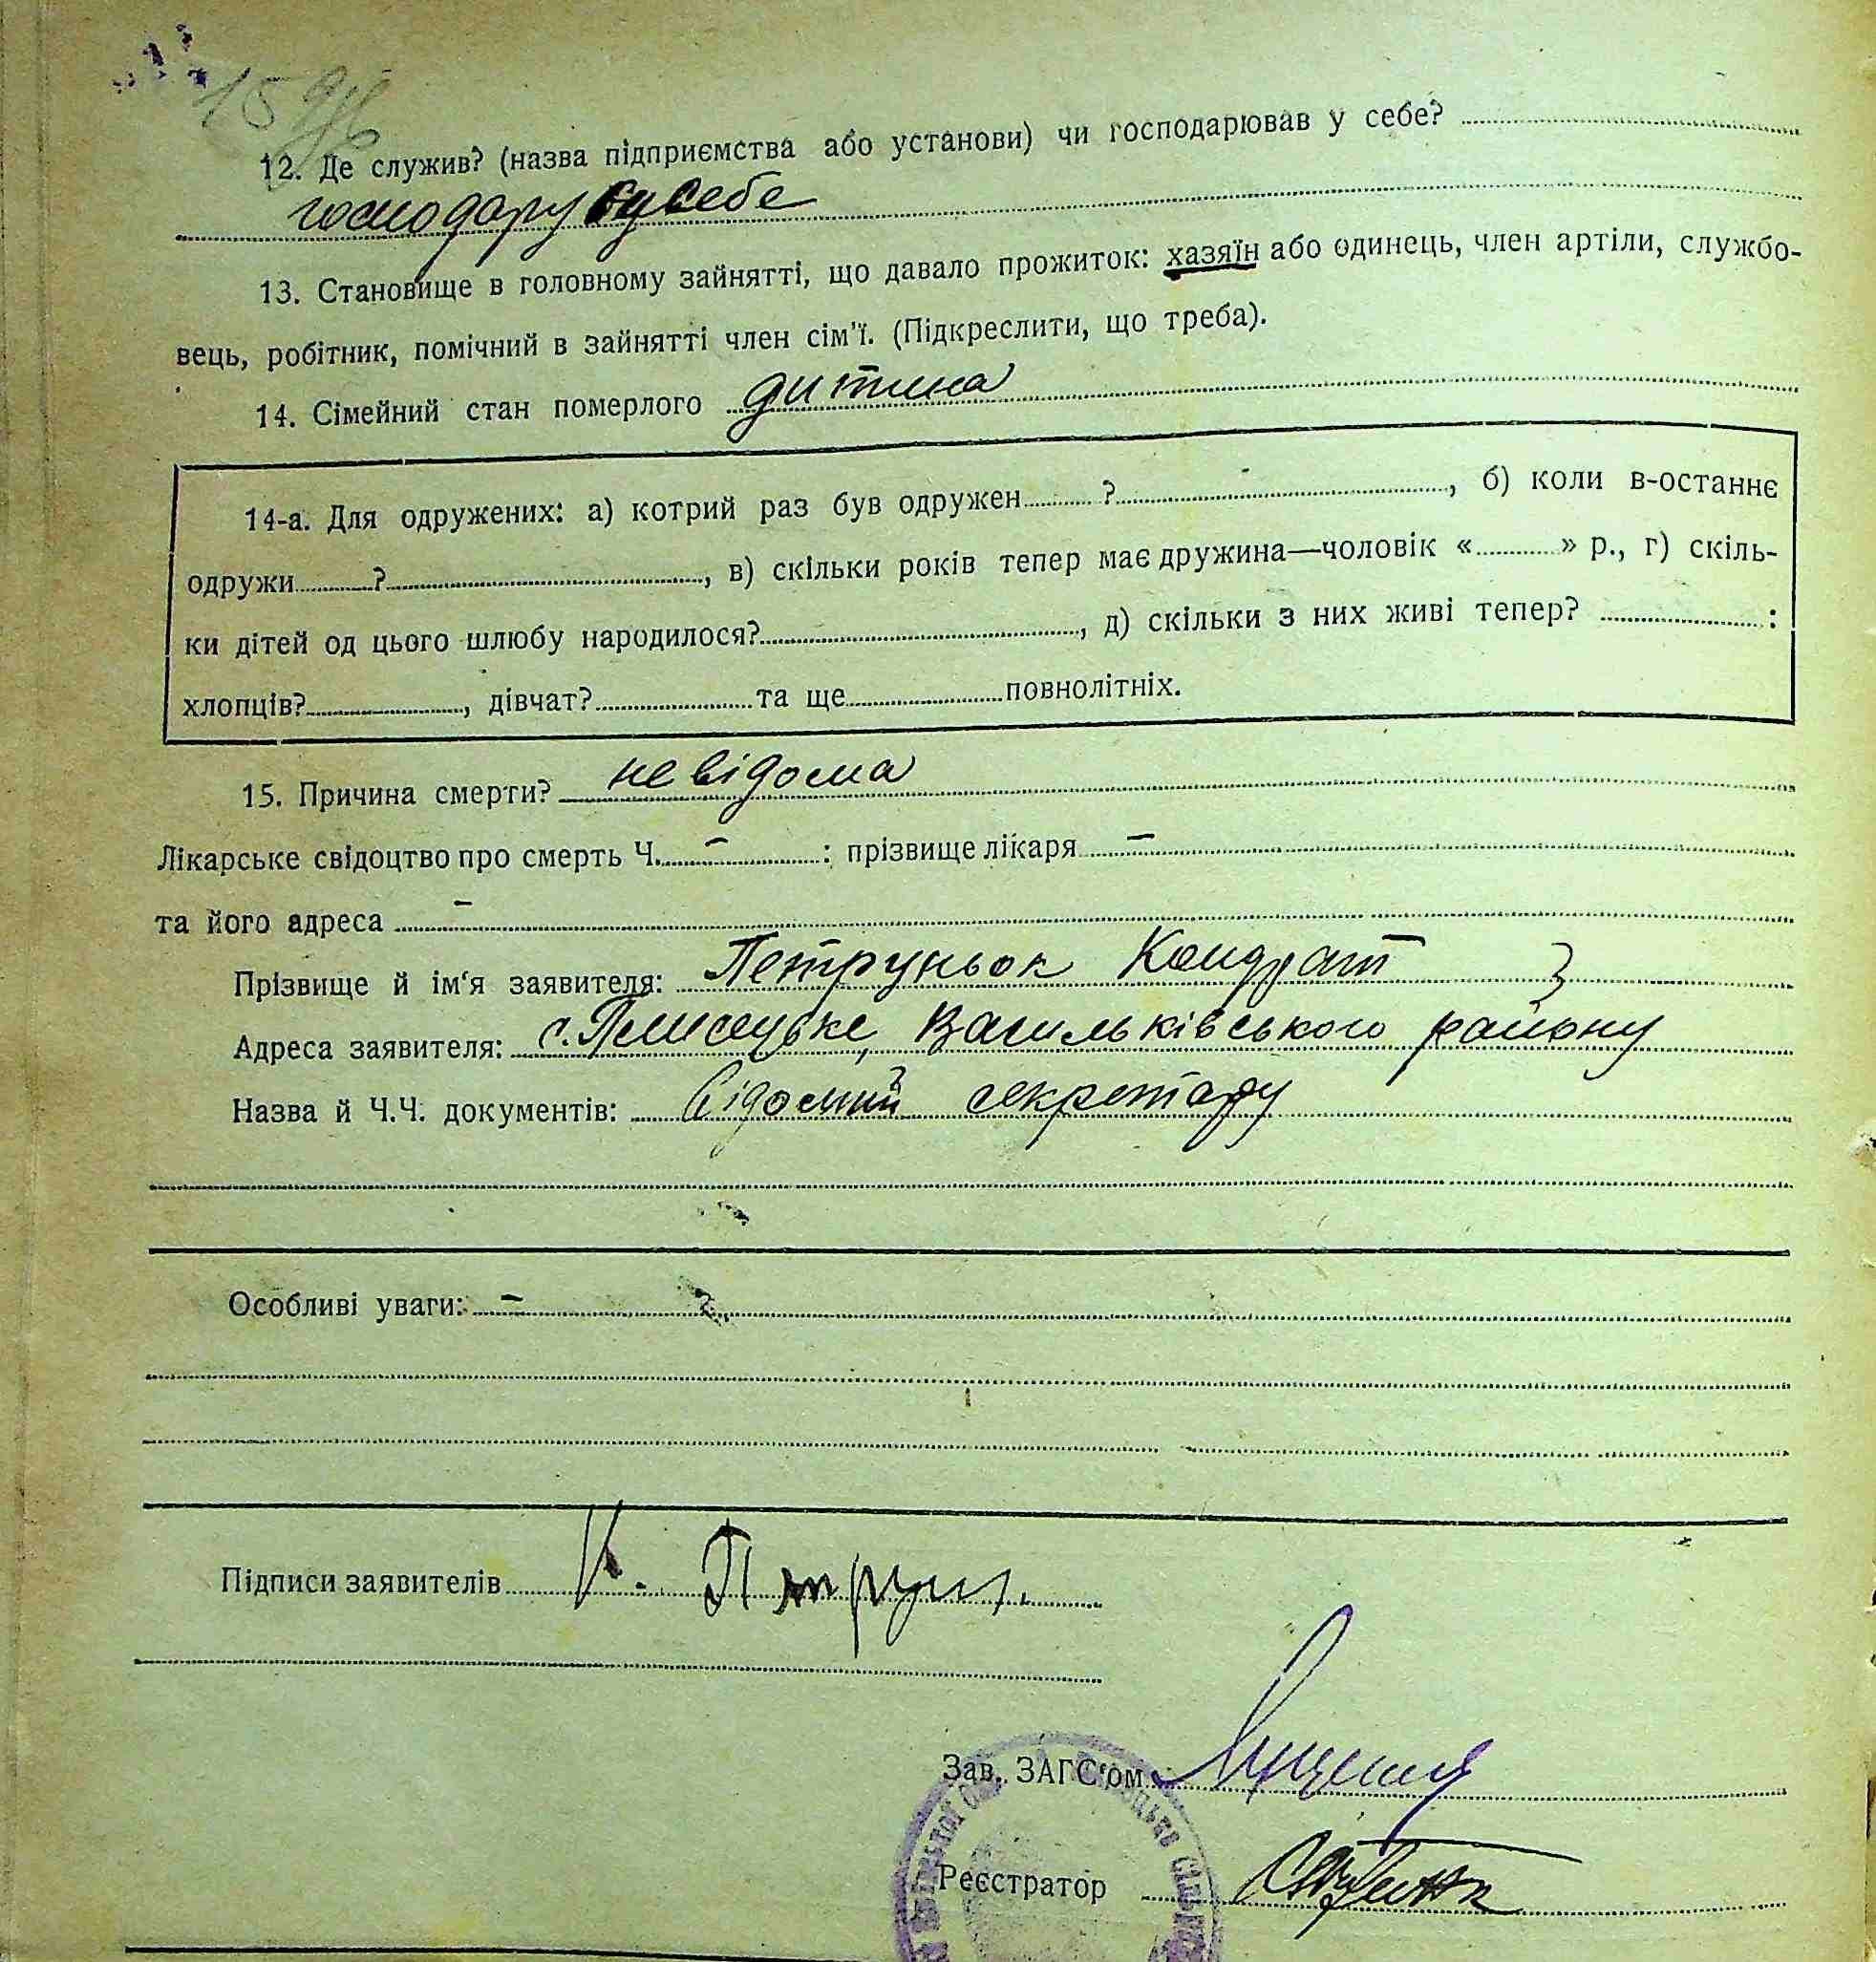 12. Де служив? (назва підприємства або установи) чи господарював у себе?
господарує у себе
13. Становище в головному зайнятті, що давало прожиток: хазяїн або одинець, член артіли, службо-
вець, робітник, помічний в зайнятті член сім'ї. (Підкреслити, що треба).
14. Сімейний стан померлого дитина
14-а. Для одружених: а) котрий раз був одружен ? , б) коли в-останнє
одружи ? , в) скільки років тепер має дружина—чоловік « » р., г) скіль-
ки дітей од цього шлюбу народилося? , д) скільки з них живі тепер? :
хлопців? , дівчат? та ще повнолітніх.
15. Причина смерти? невідома
Лікарське свідоцтво про смерть Ч. – : прізвище лікаря –
та його адреса –
Прізвище й ім'я заявителя: Петруньок Кондрат
Адреса заявителя: с. Плисецьке, Васильківського району
Назва й Ч.Ч. документів: Відомий секретару
Особливі уваги: –
Підписи заявителів К. Петрун.
Зав. ЗАГС'ом
Реєстратор